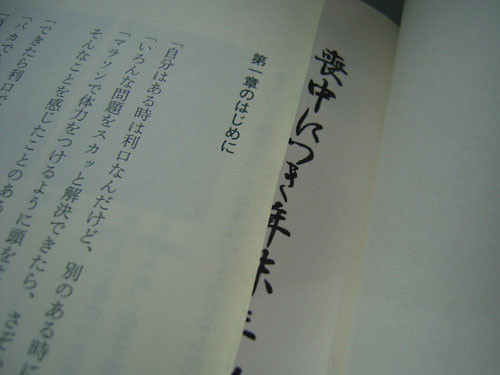 喪中につき年末
第一章のはじめに
「自分はある時は利口なんだけど、別のある時に
「いろんな問題をスカッと解決できたら、さぞ
「マラソンで体力をつけるように頭を
そんなことを感じたことのある
「できたら利口で
「バカで